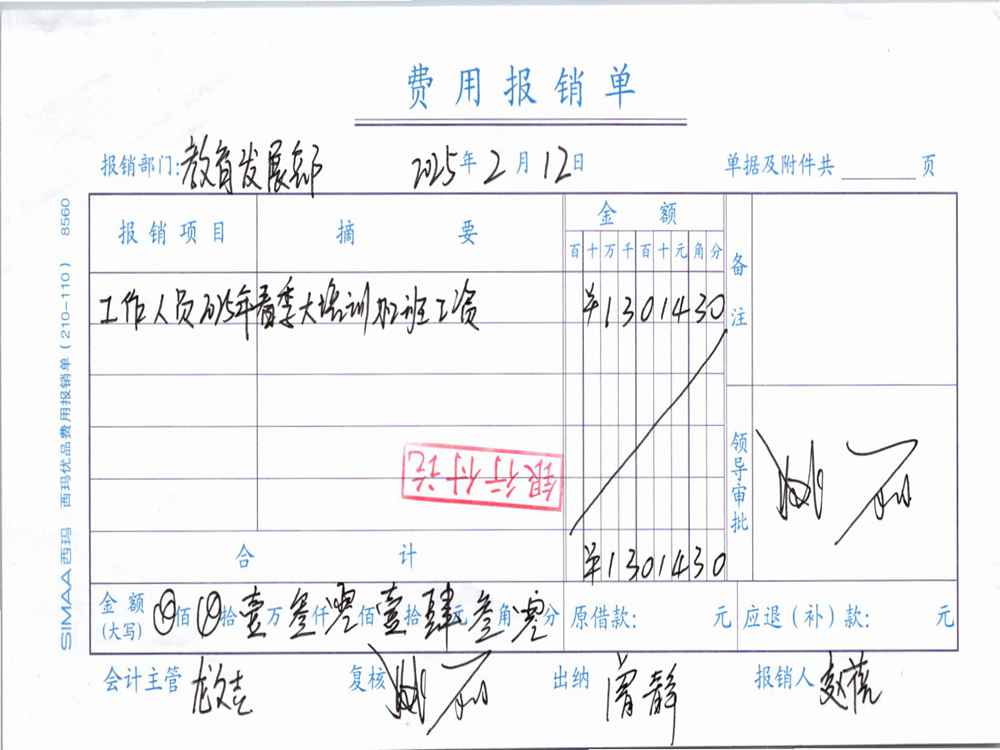 费用报销单
报销部门:教育发展部 2025年2月12日 单据及附件共 页
报销项目 摘要 金额 备注
百十万千百十元角分
工作人员2025年春季大培训加班工资 ¥1301430
银行付讫
领导审批
合计 ¥1301430
金额(大写) ⊗佰⊗拾壹万叁仟零佰壹拾肆元叁角零分 原借款: 元 应退(补)款: 元
会计主管 复核 出纳 曾静 报销人
SIMAA西玛 西玛优品费用报销单(210-110) 8560